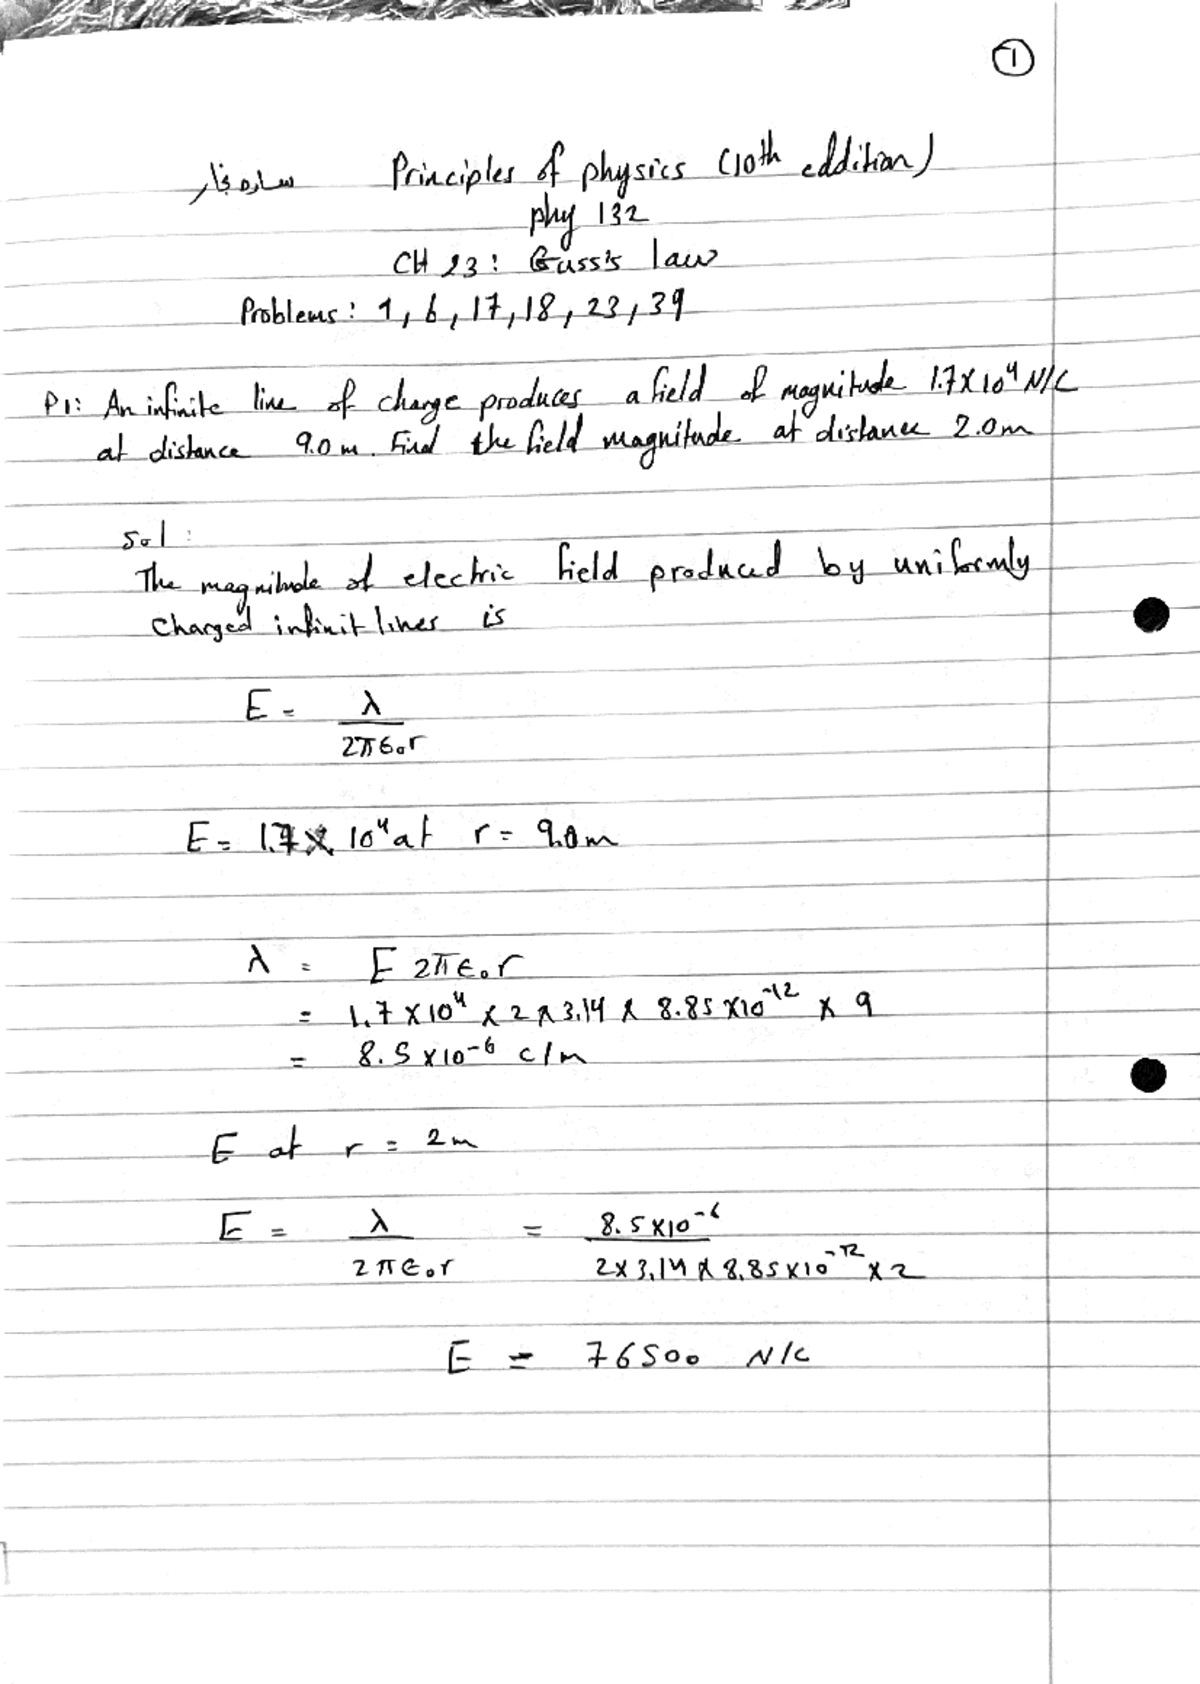 1
ساره نجار Principles of physics (10th eddition)
phy 132
CH 23: Guss's law
Problems: 1, 6, 17, 18, 23, 39
P1: An infinite line of charge produces a field of magnitude 1.7X10⁴ N/C
at distance 9.0 m. Find the field magnitude at distance 2.0m
Sol:
The magnitude of electric field produced by uniformly
Charged infinit lines is
E = λ / 2πϵ₀r
E = 1.7 X 10⁴ at r = 9.0m
λ = E 2πϵ₀r
= 1.7 X10⁴ X 2 X 3.14 X 8.85 X10⁻¹² X 9
= 8.5 X10⁻⁶ c/m
E at r = 2m
E = λ / 2πϵ₀r = 8.5X10⁻⁶ / 2X3.14 X 8.85X10⁻¹² X2
E = 76500 N/C